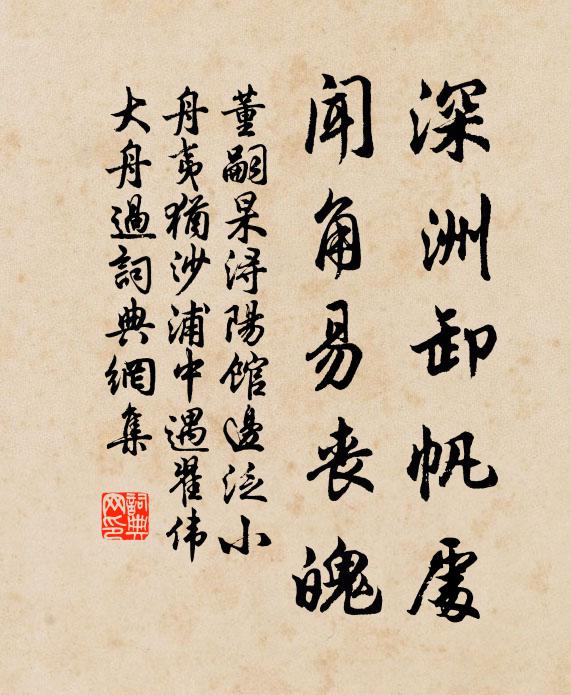 深洲卸帆處
聞角易丧魄
董嗣杲浔陽館邊泛小
舟夷猶沙浦中遇翟伟
大舟過詞典網集
詞典网印